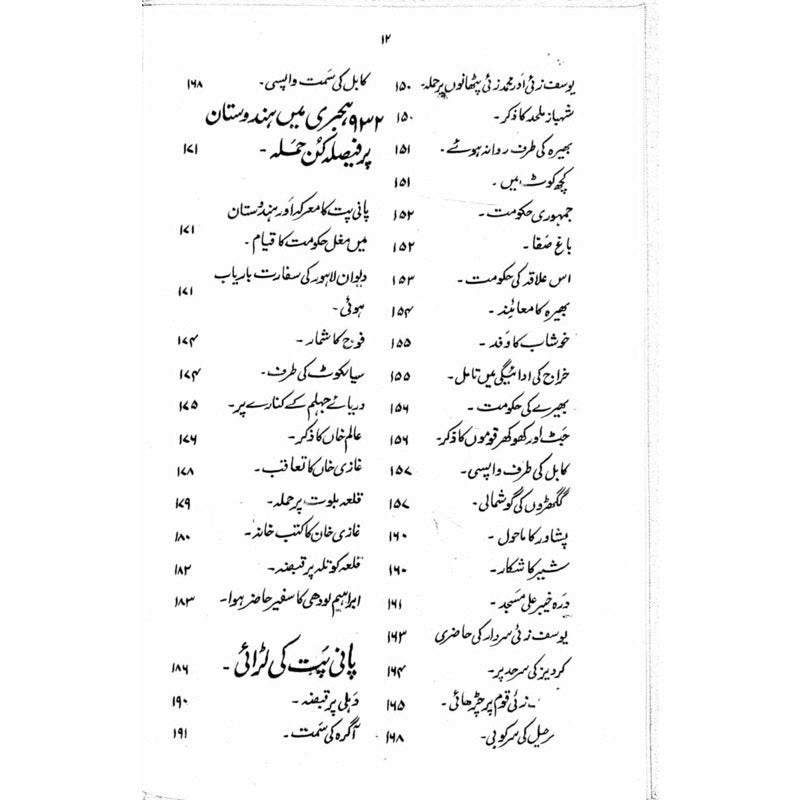 ۱۲
یوسف زئی اور محمد زئی پٹھانوں پر حملہ ۱۵۰
شہباز ملحد کا ذکر۔ ۱۵۰
بھیرہ کی طرف روانہ ہوئے۔ ۱۵۱
کچھ کوٹ میں۔ ۱۵۱
جمہوری حکومت۔ ۱۵۲
باغ صفا۔ ۱۵۲
اس علاقہ کی حکومت۔ ۱۵۳
بھیرہ کا معائنہ۔ ۱۵۴
خوشاب کا وفد۔ ۱۵۵
خراج کی ادائیگی میں تامل۔ ۱۵۵
بھیرے کی حکومت۔ ۱۵۶
جٹ اور کھوکھر قوموں کا ذکر۔ ۱۵۶
کابل کی طرف واپسی۔ ۱۵۷
گکھڑوں کی گوشمالی۔ ۱۵۷
پشاور کا ماحول۔ ۱۶۰
شیر کا شکار۔ ۱۶۰
درہ خیبر علی مسجد۔ ۱۶۱
یوسف زئی سردار کی حاضری ۱۶۳
کردیز کی سرحد پر۔ ۱۶۴
زئی قوم پر چڑھائی۔ ۱۶۵
کی سرکوبی۔ ۱۶۸
کابل کی سمت واپسی۔ ۱۶۸
۹۳۲ ہجری میں ہندوستان
پر فیصلہ کن حملہ۔ ۱۷۱
پانی پت کا معرکہ اور ہندوستان
میں مغل حکومت کا قیام۔ ۱۷۱
دیوان لاہور کی سفارت باریاب
ہوئی۔ ۱۷۱
فوج کا شمار۔ ۱۷۴
سیالکوٹ کی طرف۔ ۱۷۴
دریائے جہلم کے کنارے پر۔ ۱۷۵
عالم خاں کا ذکر۔ ۱۷۶
غازی خاں کا تعاقب۔ ۱۷۸
قلعہ بلوت پر حملہ۔ ۱۷۹
غازی خان کا کتب خانہ۔ ۱۸۰
قلعہ کوتلہ پر قبضہ۔ ۱۸۲
ابراہیم لودھی کا سفیر حاضر ہوا۔ ۱۸۳
پانی پت کی لڑائی۔ ۱۸۶
دہلی پر قبضہ۔ ۱۹۰
آگرہ کی سمت۔ ۱۹۱